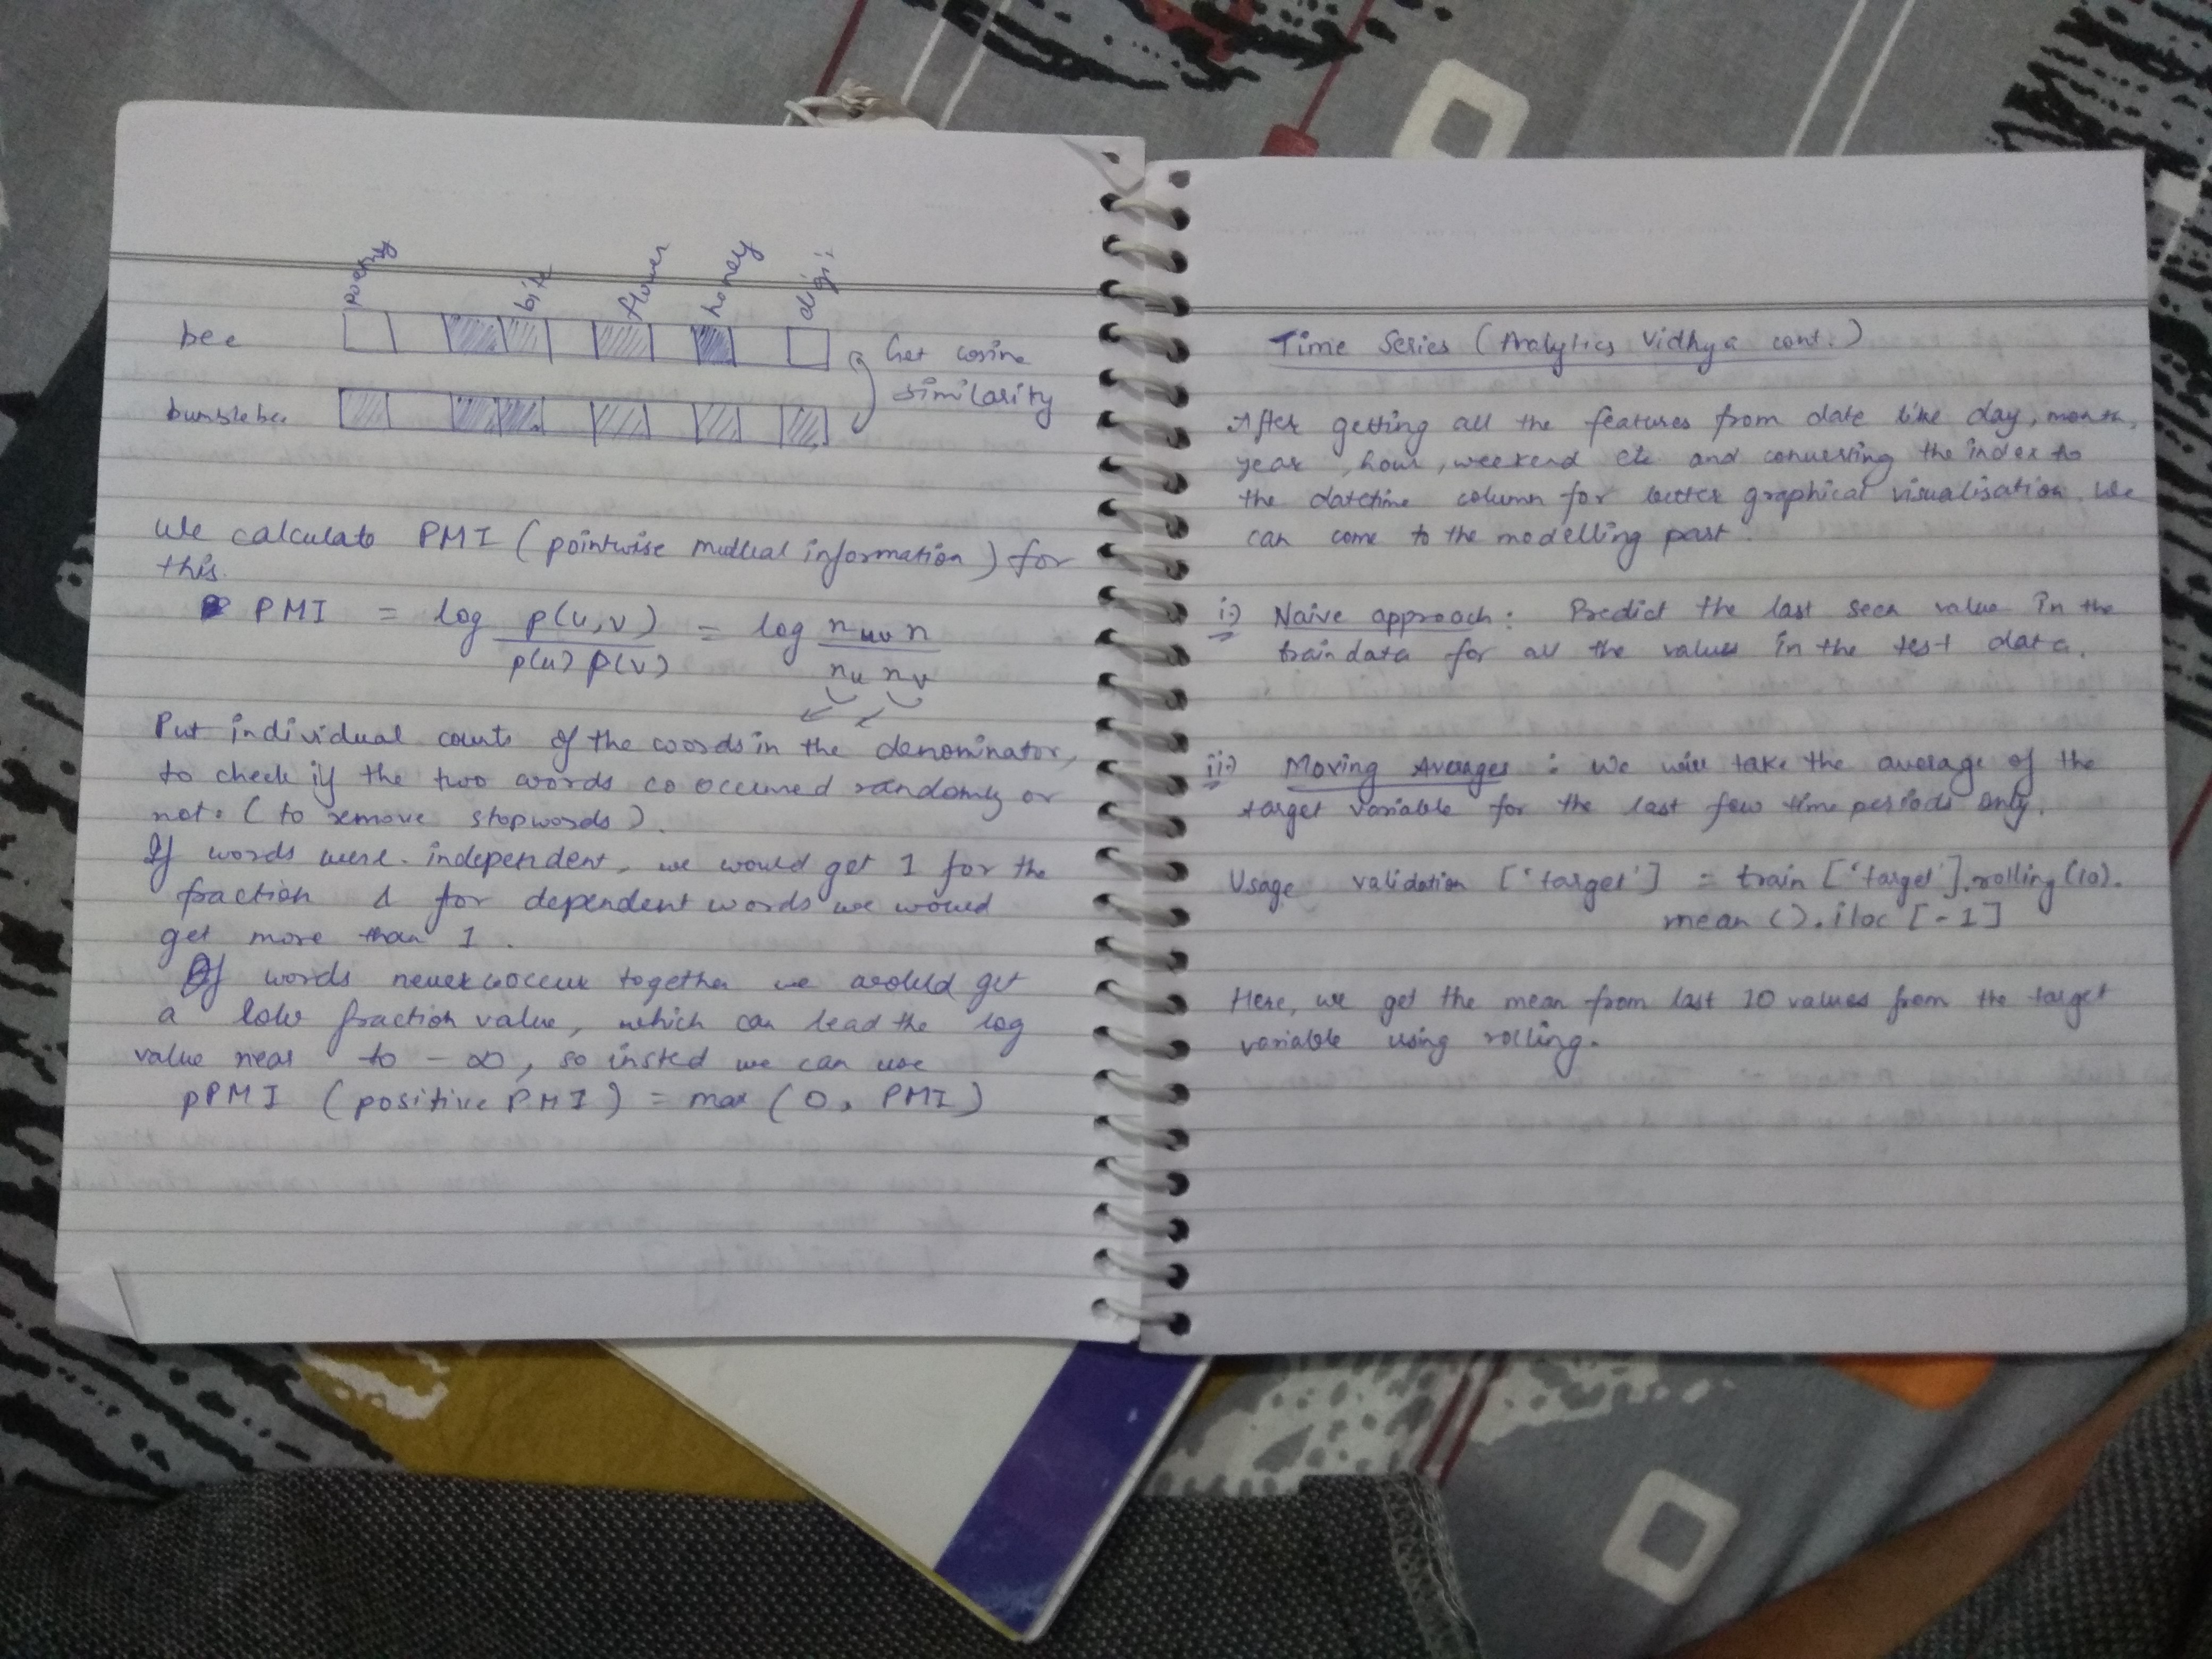 poetry bite flower honey digi:
bee
Get cosine
similarity
bumblebee
We calculate PMI (pointwise mutual information) for
this.
PMI = log p(u,v) / p(u) p(v) = log nuv n / nu nv
Put individual counts of the words in the denominator,
to check if the two words co occurred randomly or
not. (to remove stopwords).
If words were independent, we would get 1 for the
fraction & for dependent words we would
get more than 1.
If words never coccur together we would get
a low fraction value, which can lead the log
value near to - ∞, so insted we can use
pPMI (positive PMI) = max (0, PMI)
Time Series (Analytics Vidhya cont.)
After getting all the features from date like day, month,
year, hour, weekend etc and converting the index to
the datetime column for better graphical visualisation we
can come to the modelling part.
i) Naive approach: Predict the last seen value in the
train data for all the values in the test data.
ii) Moving Averages: We will take the average of the
target variable for the last few time periods only.
Usage validation ['target'] = train ['target'].rolling(10).
mean().iloc [-1]
Here, we get the mean from last 10 values from the target
variable using rolling.